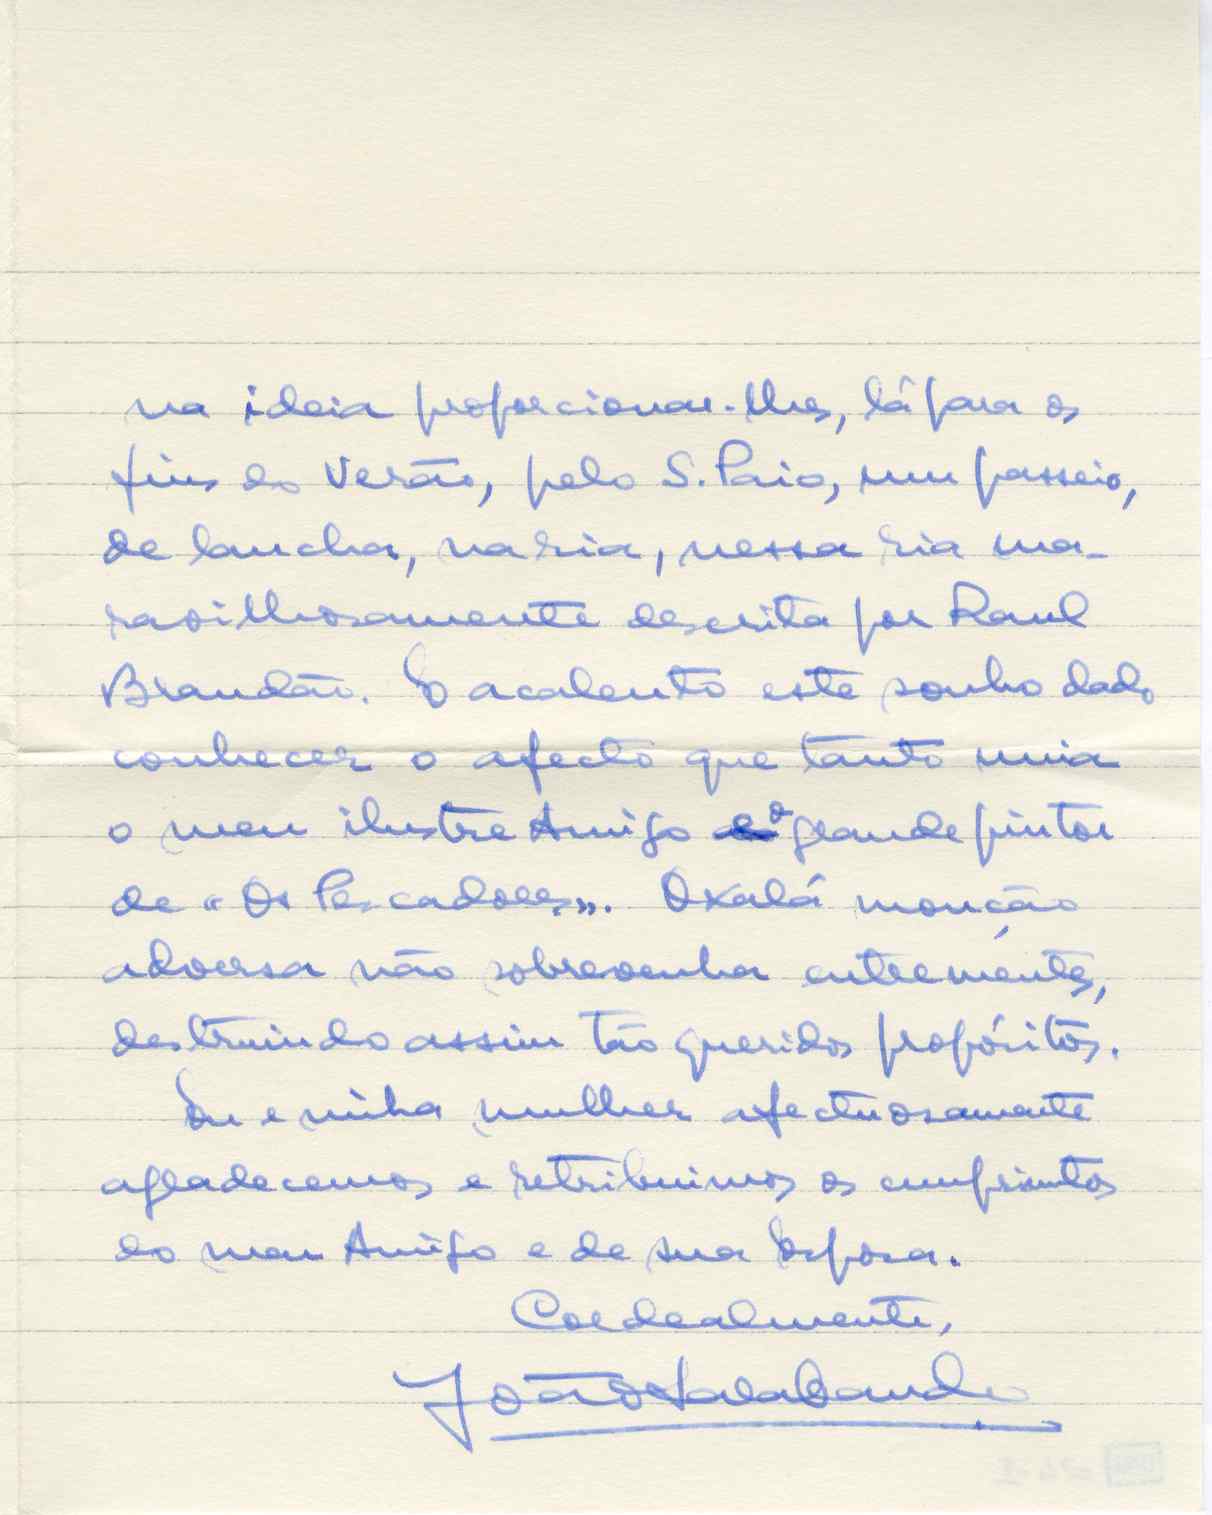 na ideia proporcionar-lhes, lá para os
fins do Verão, pelo S. Paio, um passeio,
de lancha, na ria, nessa ria ma-
ravilhosamente descrita por Raul
Brandão. E acalento este sonho dado
conhecer o afecto que tanto unia
o meu ilustre Amigo ao grande pintor
de «Os Pescadores». Oxalá monção
adversa não sobrevenha entrementes,
destruindo assim tão queridos propósitos.
Eu e minha mulher afectuosamente
agradecemos e retribuimos os cumprimtos
do meu Amigo e de sua Esposa.
Cordealmente,
João Salabando